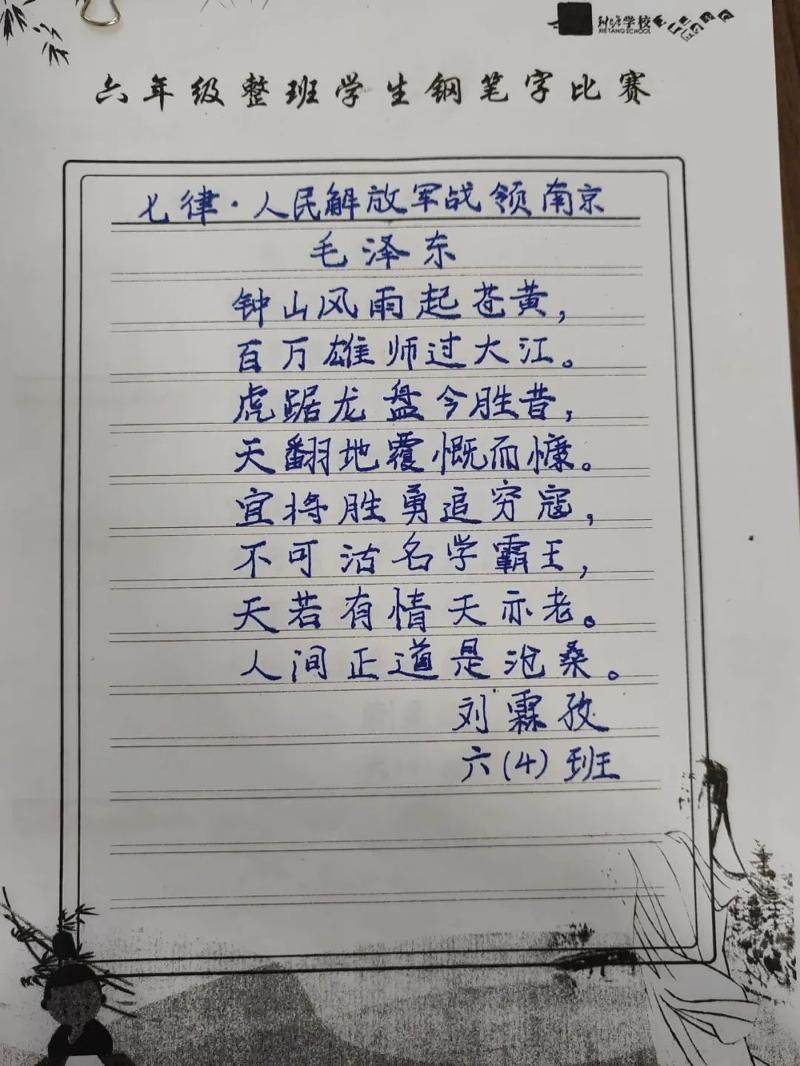 学校
XIETANG SCHOOL
六年级整班学生钢笔字比赛
七律·人民解放军战领南京
毛泽东
钟山风雨起苍黄，
百万雄师过大江。
虎踞龙盘今胜昔，
天翻地覆慨而慷。
宜将胜勇追穷寇，
不可沽名学霸王，
天若有情天亦老。
人间正道是沧桑。
刘霖孜
六(4)班